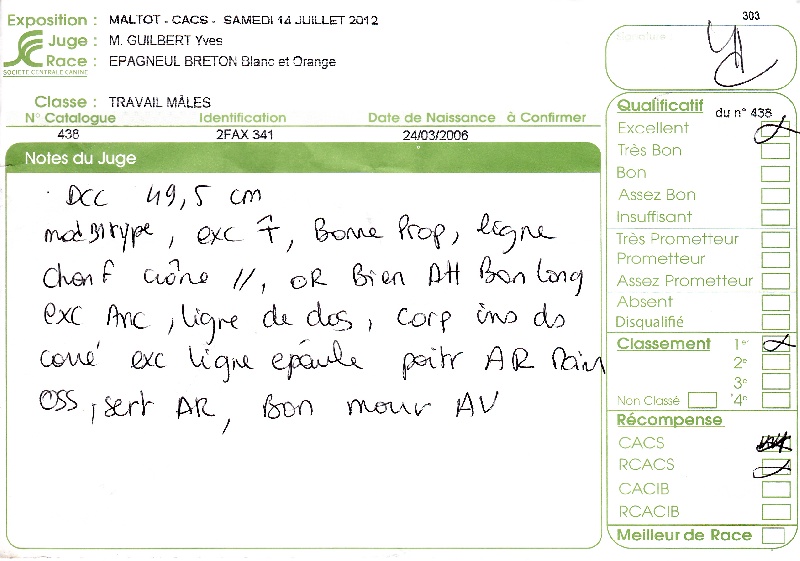 303
Exposition : MALTOT - CACS - SAMEDI 14 JUILLET 2012
Juge : M. GUILBERT Yves
Race : EPAGNEUL BRETON Blanc et Orange
SOCIÉTÉ CENTRALE CANINE
signature
Classe : TRAVAIL MÂLES
N° Catalogue Identification Date de Naissance à Confirmer
438 2FAX 341 24/03/2006
Notes du Juge
DCC 49,5 cm
type, exc, Bonne Prop, ligne
crâne //, OR Bien Att Bon long
exc Anc, ligne de dos, corp ins ds
carré exc ligne épaule poitr AR
oss, sert AR, Bon mouv AV
Qualificatif du n° 438
Excellent
Très Bon
Bon
Assez Bon
Insuffisant
Très Prometteur
Prometteur
Assez Prometteur
Absent
Disqualifié
Classement 1er
2e
3e
Non Classé 4e
Récompense
CACS
RCACS
CACIB
RCACIB
Meilleur de Race